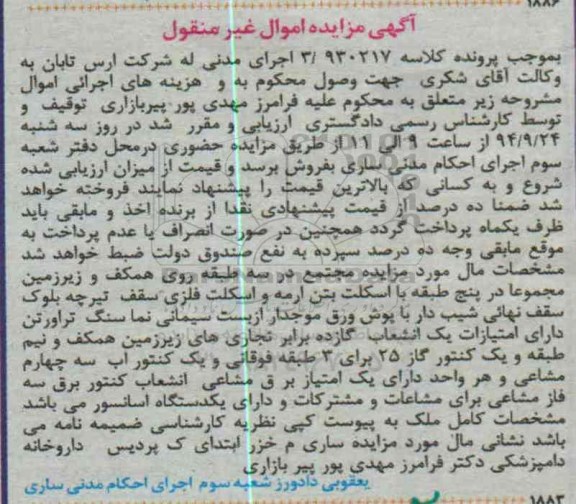 ۱۸۸۶
آگهی مزایده اموال غیر منقول
بموجب پرونده کلاسه ۹۳۰۲۱۷ /۳ اجرای مدنی له شرکت ارس تابان به
وکالت آقای شکری جهت وصول محکوم به و هزینه های اجرائی اموال
مشروحه زیر متعلق به محکوم علیه فرامرز مهدی پور-پیربازاری توقیف و
توسط کارشناس رسمی دادگستری ارزیابی و مقرر شد در روز سه شنبه
۹۴/۹/۲۴ از ساعت ۹ الی ۱۱ از طریق مزایده حضوری درمحل دفتر شعبه
سوم اجرای احکام مدنی ساری بفروش برسد و قیمت از میزان ارزیابی شده
شروع و به کسانی که بالاترین قیمت را پیشنهاد نمایند فروخته خواهد
شد ضمنا ده درصد از قیمت پیشنهادی نقدا از برنده اخذ و مابقی باید
ظرف یکماه پرداخت گردد همچنین در صورت انصراف یا عدم پرداخت به
موقع مابقی وجه ده درصد سپرده به نفع صندوق دولت ضبط خواهد شد
مشخصات مال مورد مزایده مجتمع در سه طبقه روی همکف و زیرزمین
مجموعا در پنج طبقه با اسکلت بتن ارمه و اسکلت فلزی سقف تیرچه بلوک
سقف نهائی شیب دار با پوش ورق موجدار ازبست سیمانی نما سنگ تراورتن
دارای امتیازات یک انشعاب گازده برابر تجاری های زیرزمین همکف و نیم
طبقه و یک کنتور گاز ۲۵ برای ۳ طبقه فوقانی و یک کنتور اب سه چهارم
مشاعی و هر واحد دارای یک امتیاز بر ق مشاعی انشعاب کنتور برق سه
فاز مشاعی برای مشاعات و مشترکات و دارای یکدستگاه اسانسور می باشد
مشخصات کامل ملک به پیوست کپی نظریه کارشناسی ضمیمه نامه می
باشد نشانی مال مورد مزایده ساری م خزر ابتدای ک پردیس داروخانه
دامپزشکی دکتر فرامرز مهدی پور پیر بازاری
یعقوبی دادورز شعبه سوم اجرای احکام مدنی ساری
۱۸۸۲